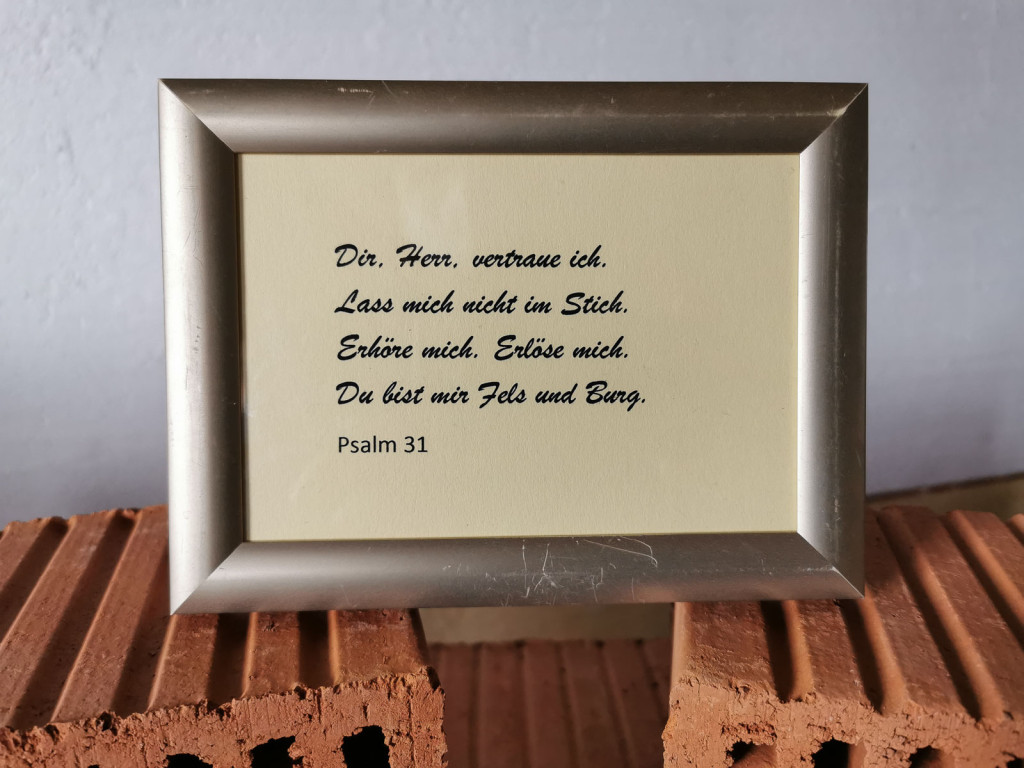 Dir, Herr, vertraue ich.
Lass mich nicht im Stich.
Erhöre mich. Erlöse mich.
Du bist mir Fels und Burg.
Psalm 31